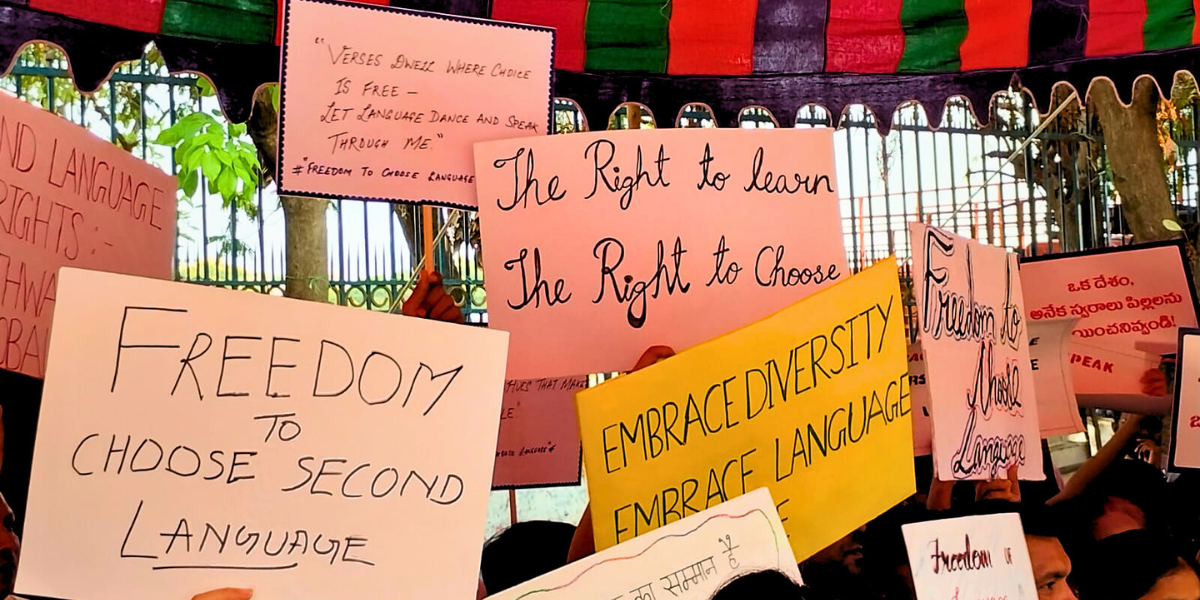 "VERSES DWELL WHERE CHOICE
IS FREE –
LET LANGUAGE DANCE AND SPEAK
THROUGH ME."
#"FREEDOM TO CHOOSE LANGUAGE
LANGUAGE
RIGHTS :-
The Right to learn
The Right to Choose
FREEDOM
TO
CHOOSE SECOND
LANGUAGE
THAT
EMBRACE DIVERSITY
EMBRACE LANGUAGE
का सम्मान है
Freedom to
Choose
Language
ఒక దేశం,
అనేక స్వరాలు పిల్లలను
PEAK
Freedom OF